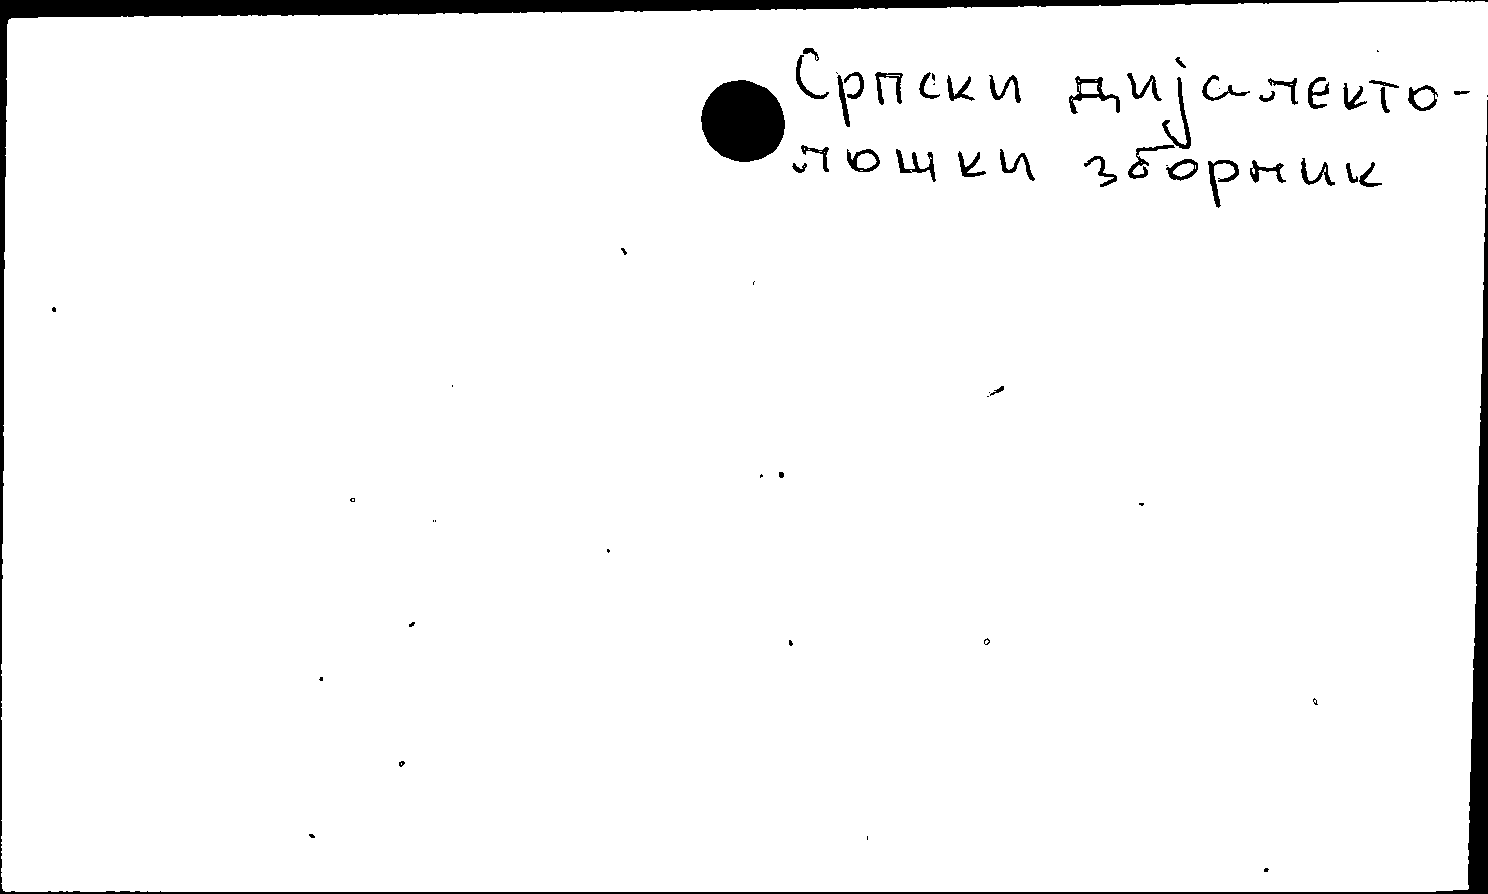 Српски дијалекто-
лошки зборник